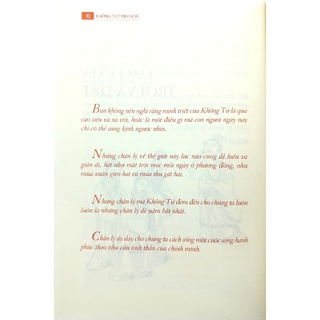 10 KHỔNG TỬ TINH HOA
Bạn không nên nghĩ rằng minh triết của Khổng Tử là quá
cao siêu và xa vời, hoặc là một điều gì mà con người ngày nay
chỉ có thể cung kính ngước nhìn.
Nhưng chân lý về thế giới này lúc nào cũng dễ hiểu và
giản dị, hệt như mặt trời mọc mỗi ngày ở phương đông, như
mùa xuân gieo hạt và mùa thu gặt hái.
Nhưng chân lý mà Khổng Tử đem đến cho chúng ta luôn
luôn là những chân lý dễ nắm bắt nhất.
Chân lý ấy dạy cho chúng ta cách sống một cuộc sống hạnh
phúc theo nhu cầu tinh thần của chính mình.